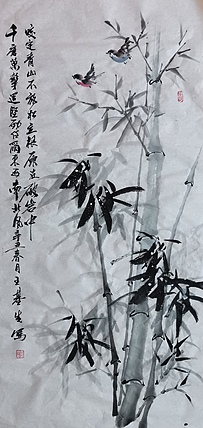 咬定青山不放松立根原在破岩中
千磨萬擊還堅勁任爾東西南北風辛丑春月王生寫